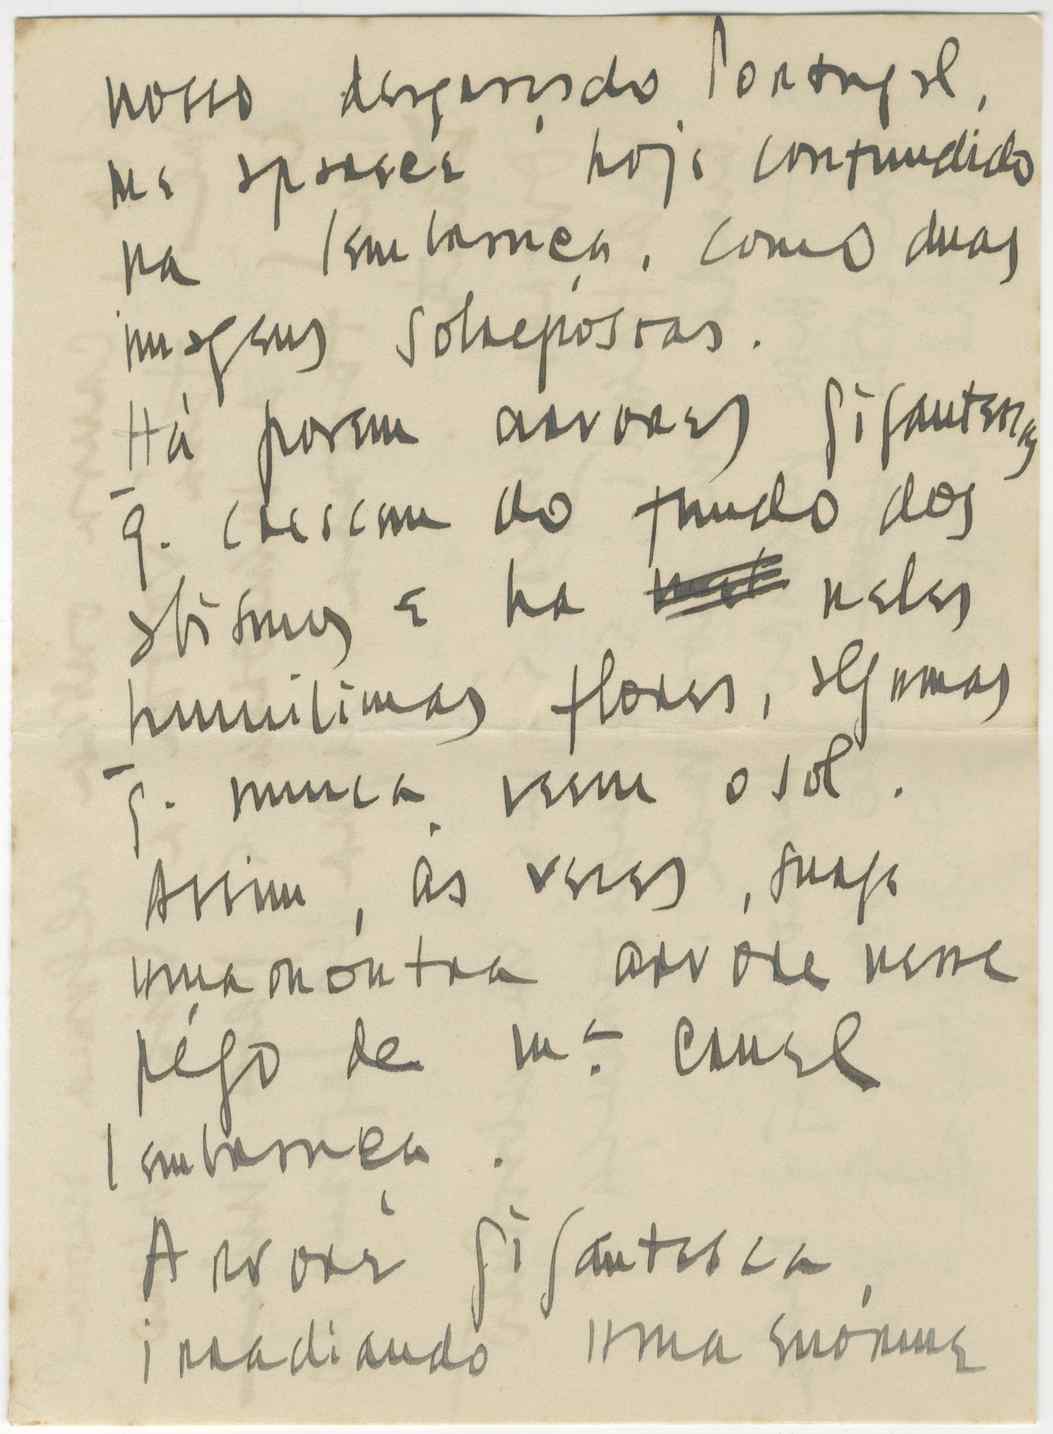 nosso desgraçado Portugal,
me aparece hoje confundido
na lembrança, como duas
imagens sobrepóstas.
Há porem arvores gigantescas
q. crescem do fundo dos
abismos e ha neles
humilimas flores, algumas
q. nunca veem o sol.
Assim, ás vezes, surge
uma outra arvore nesse
pégo de m.ª cruel
lembrança.
Arvore gigantesca,
irradiando uma enórme